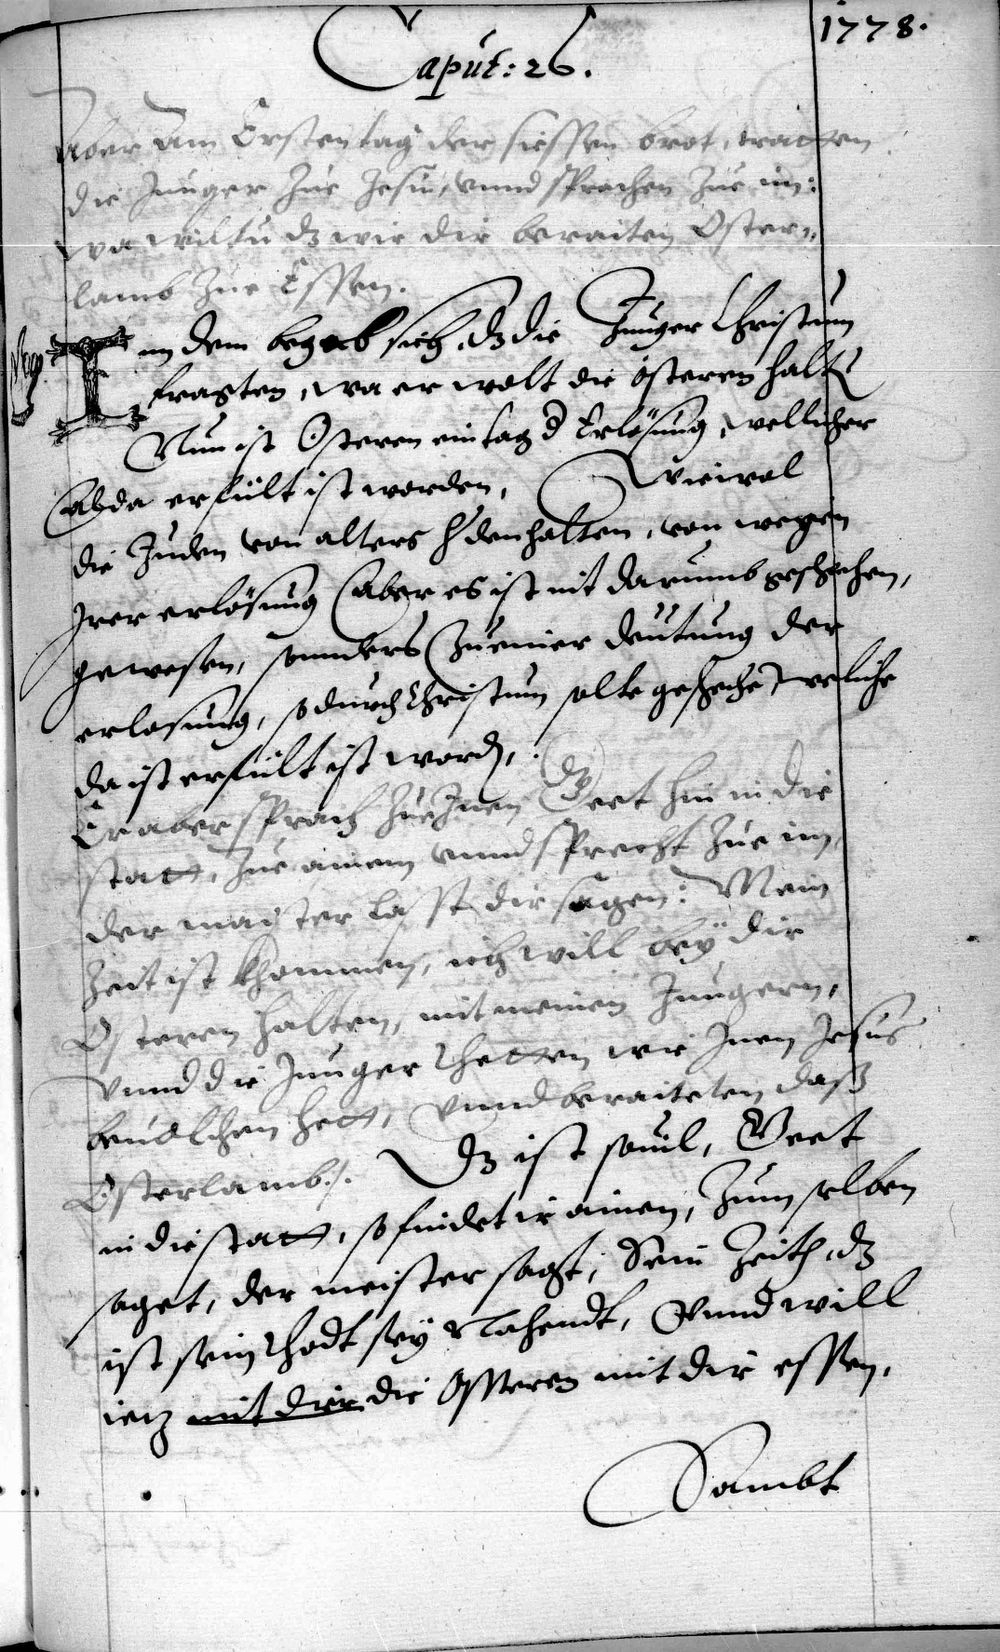 1778.
Caput: 26.
Aber Am Ersten tag der siessen brot, tratten
die Junger Zue Jesu, vnnd sprachen Zue im:
wa wiltu dz wir dir beraiten Oster„
lamb Zue Essen.
In dem begab sich, dz die Junger Christum
fragten, wa er wolt die osteren halten
Nun ist Osteren ein tag d Erlösung, wellicher
Alda erfült ist worden, Wiewol
die Juden von alters h den halten, von wegen
Irer erlösung (Aber es ist nit darumb geschehen,
gewesen, sonnders Zu einer deutung der
erlosung, so durch Christum solte geschechen, weliche
da ist erfült ist word,
Er aber sprach Zue Inen Geet hin in die
statt, Zue ainem vnnd sprecht Zue im,
der maister lasst dir sagen: Mein
Zeit ist khommen, ich will bey dir
Osteren halten, mit meinen Jungern,
Vnnd die Junger thetten wie Inen Jesus
beuolchen hett, Vnnd beraiteten daß
Osterlamb:/. Dz ist souil, Geet
in die statt, so findet ir ainen, Zum selben
saget, der meister sagt, Sein Zeith, dz
ist sein thodt sey Nahendt, Vnnd will
ietz mit dir die Osteren mit dir essen,
Sambt